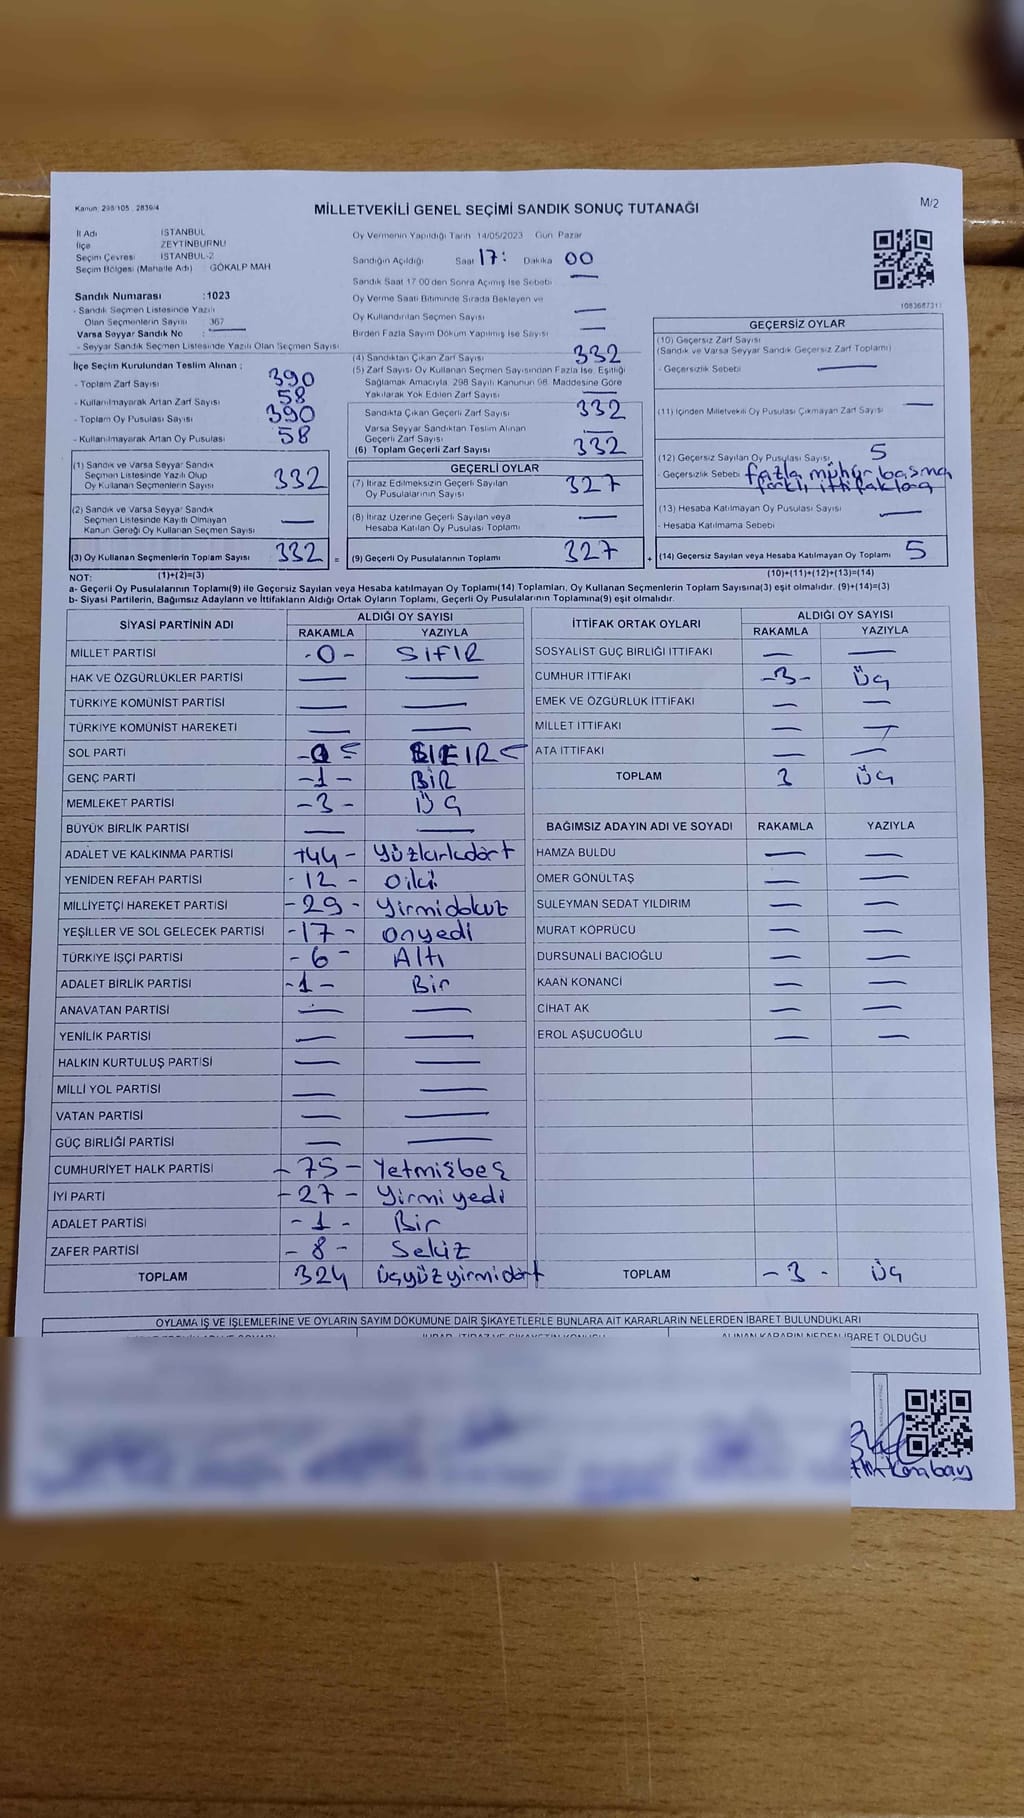 Kanun: 298/105 , 2839/4
MİLLETVEKİLİ GENEL SEÇİMİ SANDIK SONUÇ TUTANAĞI
M/2
İl Adı İSTANBUL
İlçe ZEYTİNBURNU
Seçim Çevresi İSTANBUL-2
Seçim Bölgesi (Mahalle Adı) : GÖKALP MAH
Sandık Numarası :1023
- Sandık Seçmen Listesinde Yazılı
Olan Seçmenlerin Sayısı 367
Varsa Seyyar Sandık No :
- Seyyar Sandık Seçmen Listesinde Yazılı Olan Seçmen Sayısı
İlçe Seçim Kurulundan Teslim Alınan ;
- Toplam Zarf Sayısı 390
- Kullanılmayarak Artan Zarf Sayısı 58
- Toplam Oy Pusulası Sayısı 390
- Kullanılmayarak Artan Oy Pusulası 58
(1) Sandık ve Varsa Seyyar Sandık
Seçmen Listesinde Yazılı Olup
Oy Kullanan Seçmenlerin Sayısı 332
(2) Sandık ve Varsa Seyyar Sandık
Seçmen Listesinde Kayıtlı Olmayan
Kanun Gereği Oy Kullanan Seçmen Sayısı —
(3) Oy Kullanan Seçmenlerin Toplam Sayısı 332 =
Oy Vermenin Yapıldığı Tarih 14/05/2023 Gün Pazar
Sandığın Açıldığı Saat 17: Dakika 00
Sandık Saat 17 00'den Sonra Açılmış İse Sebebi —
Oy Verme Saati Bitiminde Sırada Bekleyen ve
Oy Kullandırılan Seçmen Sayısı —
Birden Fazla Sayım Döküm Yapılmış İse Sayısı —
(4) Sandıktan Çıkan Zarf Sayısı 332
(5) Zarf Sayısı Oy Kullanan Seçmen Sayısından Fazla İse, Eşitliği
Sağlamak Amacıyla, 298 Sayılı Kanunun 98. Maddesine Göre
Yakılarak Yok Edilen Zarf Sayısı —
Sandıkta Çıkan Geçerli Zarf Sayısı 332
Varsa Seyyar Sandıktan Teslim Alınan
Geçerli Zarf Sayısı —
(6) Toplam Geçerli Zarf Sayısı 332
GEÇERLİ OYLAR
(7) İtiraz Edilmeksizin Geçerli Sayılan
Oy Pusulalarının Sayısı 327
(8) İtiraz Üzerine Geçerli Sayılan veya
Hesaba Katılan Oy Pusulası Toplamı —
(9) Geçerli Oy Pusulalarının Toplamı 327 +
1083687311
GEÇERSİZ OYLAR
(10) Geçersiz Zarf Sayısı
(Sandık ve Varsa Seyyar Sandık Geçersiz Zarf Toplamı)
- Geçersizlik Sebebi —
(11) İçinden Milletvekili Oy Pusulası Çıkmayan Zarf Sayısı —
(12) Geçersiz Sayılan Oy Pusulası Sayısı 5
- Geçersizlik Sebebi fazla mühür basma
farklı ittifaklara
(13) Hesaba Katılmayan Oy Pusulası Sayısı —
- Hesaba Katılmama Sebebi
(14) Geçersiz Sayılan veya Hesaba Katılmayan Oy Toplamı 5
NOT: (1)+(2)=(3) (10)+(11)+(12)+(13)=(14)
a- Geçerli Oy Pusulalarının Toplamı(9) ile Geçersiz Sayılan veya Hesaba katılmayan Oy Toplamı(14) Toplamları, Oy Kullanan Seçmenlerin Toplam Sayısına(3) eşit olmalıdır. (9)+(14)=(3)
b- Siyasi Partilerin, Bağımsız Adayların ve İttifakların Aldığı Ortak Oyların Toplamı, Geçerli Oy Pusulalarının Toplamına(9) eşit olmalıdır.
SİYASİ PARTİNİN ADI ALDIĞI OY SAYISI
RAKAMLA YAZIYLA
MİLLET PARTİSİ -0- SIFIR
HAK VE ÖZGÜRLÜKLER PARTİSİ — —
TÜRKİYE KOMÜNİST PARTİSİ — —
TÜRKİYE KOMÜNİST HAREKETİ — —
SOL PARTİ -0- SIFIR
GENÇ PARTİ -1- BİR
MEMLEKET PARTİSİ -3- ÜÇ
BÜYÜK BİRLİK PARTİSİ — —
ADALET VE KALKINMA PARTİSİ 144- Yüzkırkdört
YENİDEN REFAH PARTİSİ -12- Oniki
MİLLİYETÇİ HAREKET PARTİSİ -29- Yirmidokuz
YEŞİLLER VE SOL GELECEK PARTİSİ -17- Onyedi
TÜRKİYE İŞÇİ PARTİSİ -6- Altı
ADALET BİRLİK PARTİSİ -1- Bir
ANAVATAN PARTİSİ — —
YENİLİK PARTİSİ — —
HALKIN KURTULUŞ PARTİSİ — —
MİLLİ YOL PARTİSİ — —
VATAN PARTİSİ — —
GÜÇ BİRLİĞİ PARTİSİ — —
CUMHURİYET HALK PARTİSİ -75- Yetmişbeş
İYİ PARTİ -27- Yirmi yedi
ADALET PARTİSİ -1- Bir
ZAFER PARTİSİ -8- Sekiz
TOPLAM 324 üçyüzyirmidört
İTTİFAK ORTAK OYLARI ALDIĞI OY SAYISI
RAKAMLA YAZIYLA
SOSYALİST GÜÇ BİRLİĞİ İTTİFAKI — —
CUMHUR İTTİFAKI -3- Üç
EMEK VE ÖZGÜRLÜK İTTİFAKI — —
MİLLET İTTİFAKI — —
ATA İTTİFAKI — —
TOPLAM 3 Üç
BAĞIMSIZ ADAYIN ADI VE SOYADI RAKAMLA YAZIYLA
HAMZA BULDU — —
ÖMER GÖNÜLTAŞ — —
SÜLEYMAN SEDAT YILDIRIM — —
MURAT KÖPRÜCÜ — —
DURSUNALİ BACIOĞLU — —
KAAN KONANCİ — —
CİHAT AK — —
EROL AŞUCUOĞLU — —
TOPLAM -3- Üç
OYLAMA İŞ VE İŞLEMLERİNE VE OYLARIN SAYIM DÖKÜMÜNE DAİR ŞİKAYETLERLE BUNLARA AİT KARARLARIN NELERDEN İBARET BULUNDUKLARI
ALINAN KARARIN NEDEN İBARET OLDUĞU